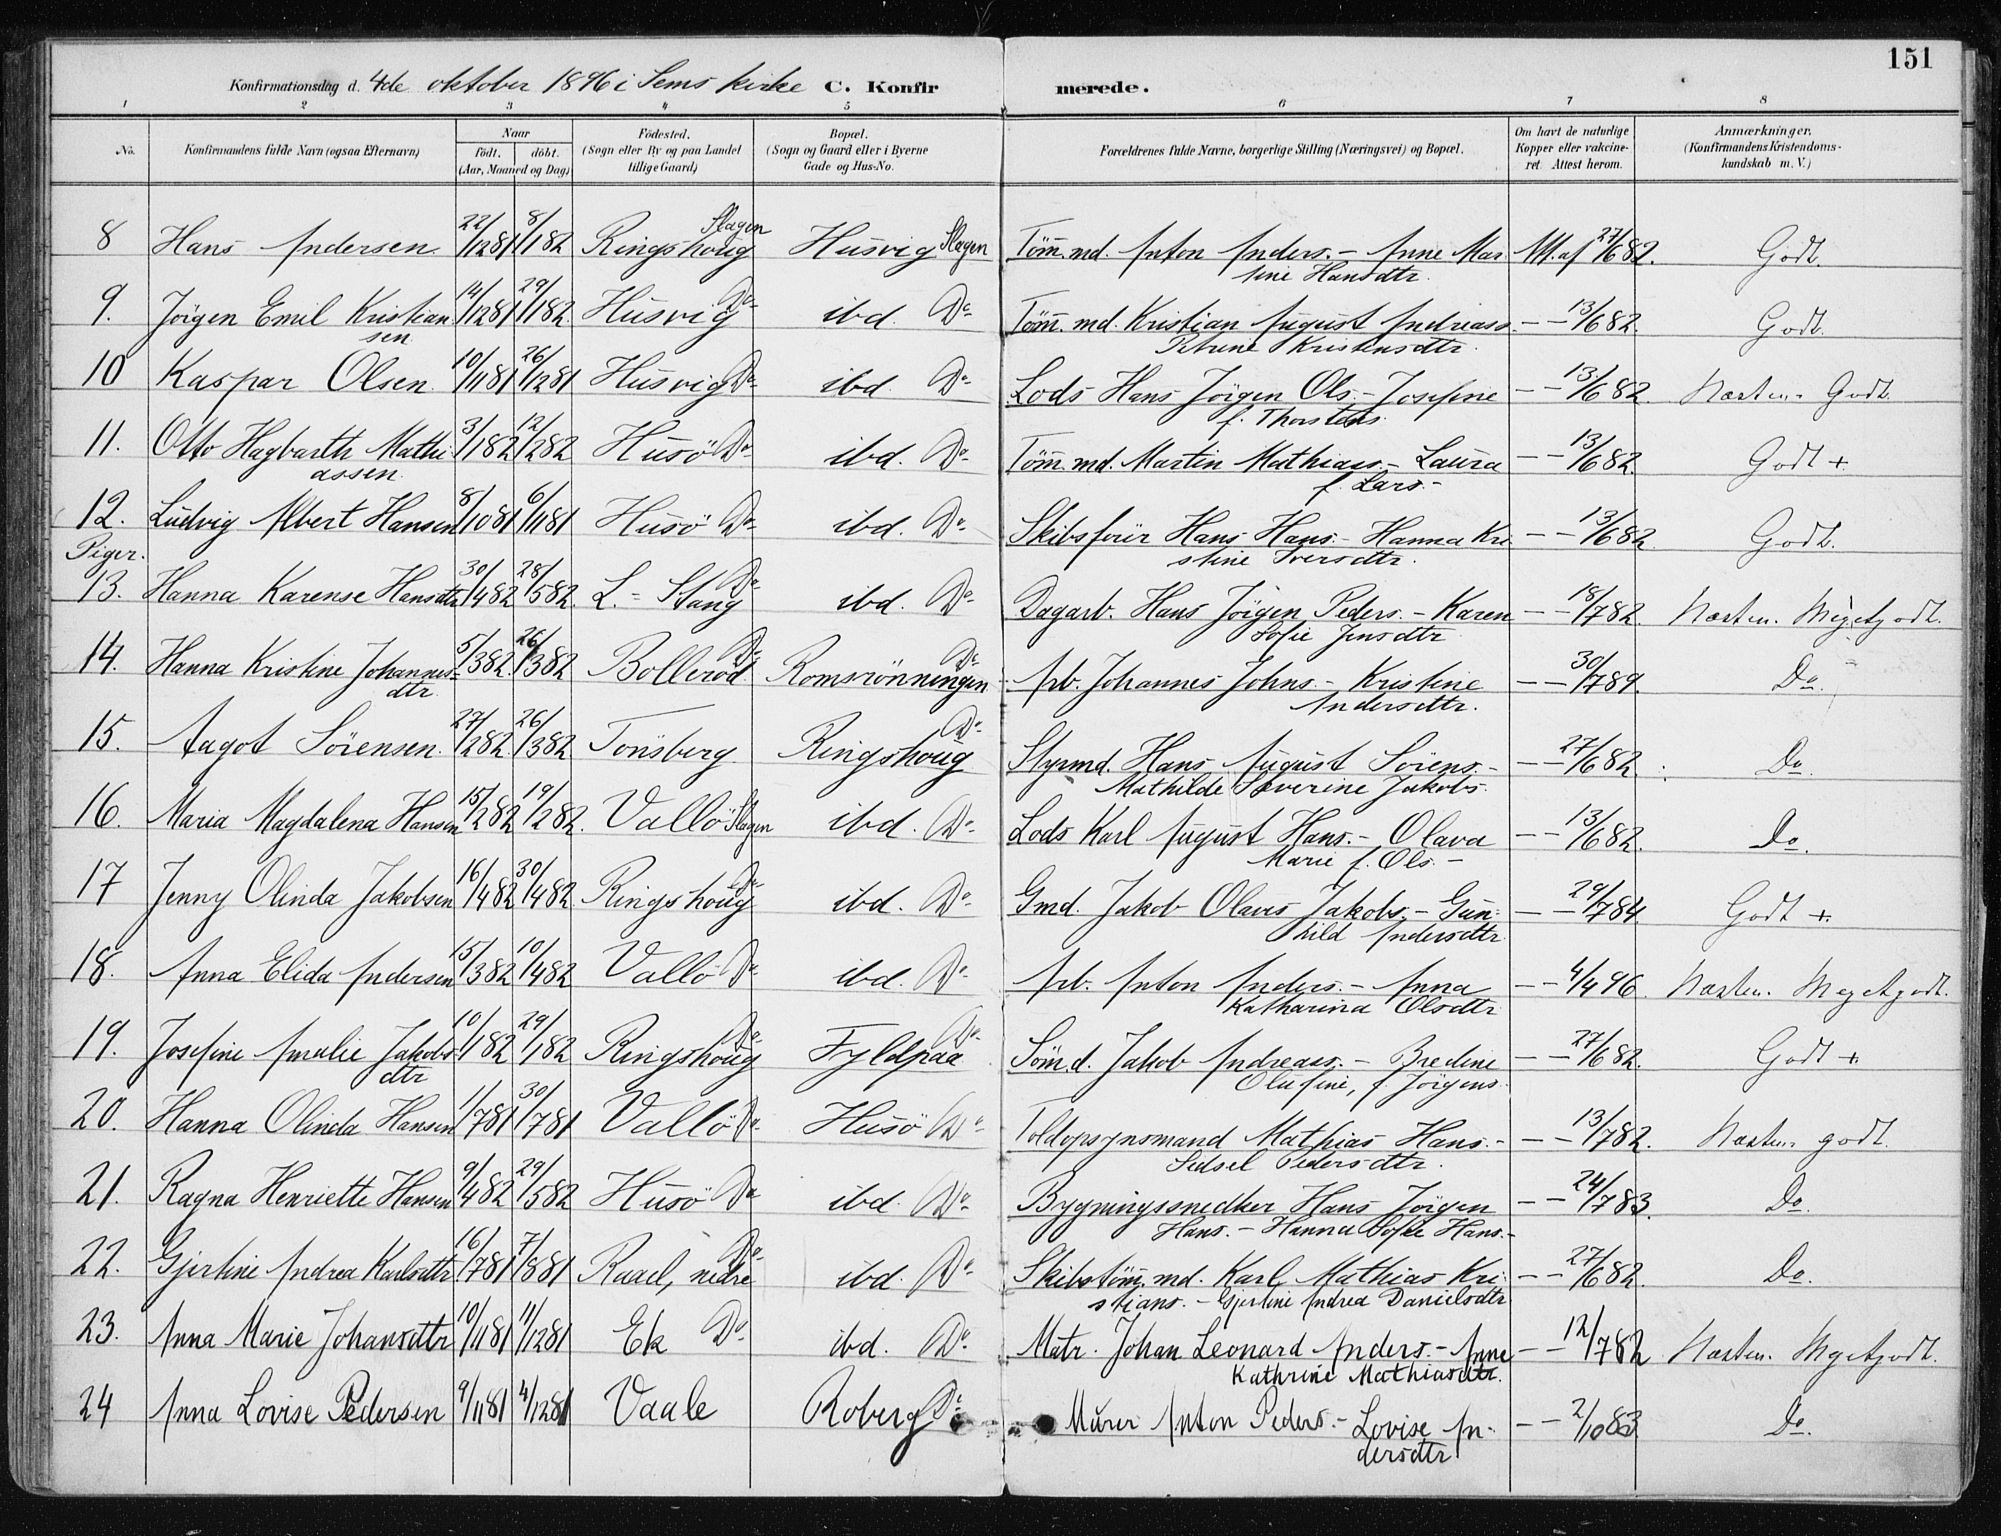 151
Konfirmationsdag d. 4de oktober 1896 i Sems kirke C. Konfirmerede.
1 2 3 4 5 6 7 8
No. Konfirmandens fulde Navn (ogsaa Efternavn) Naar födt. döbt. (Aar, Maaned og Dag) Födested. (Sogn eller By og paa Landet tillige Gaard) Bopæl. (Sogn og Gaard eller i Byerne Gade og Hus-No. Forældrenes fulde Navne, borgerlige Stilling (Næringsvei) og Bopæl. Om havt de naturlige Kopper eller vakcineret. Attest herom. Anmærkninger, (Konfirmandens Kristendomskundskab m. V.)
8 Hans Andersen 22/12 81 8/1 82 Ringshoug Slagen Husvig Slagen Tömmd. Anton Anders. - Anne Mar- M. af 27/6 82. Godt.
tine Hansdtr
9. Jörgen Emil Kristian 14/12 81 29/1 82 Husvig Do ibd. Do Tömmd. Kristian August Andreass. - - 13/6 82. Godt.
sen Petrine Kristensdtr.
10 Kaspar Olsen 10/11 81 26/12 81 Husvig Do ibd. Do Lods Hans Jörgen Ols. - Josefine - - 13/6 82 Næsten Godt.
f. Thorstens.
11. Otto Hagbarth Mathi 3/1 82 12/2 82 Husö Do ibd. Do Tömmd. Martin Mathias. - Laura - - 13/6 82 Godt +
assen. f. Lars. -
12. Ludvig Albert Hansen 8/10 81 6/11 81 Husö Do ibd. Do Skibsförer Hans Hans. - Hanna Kri - - 13/6 82. Godt.
stine Iversdtr.
Piger.
13. Hanna Karense Hansdtr 30/4 82 28/5 82. L. - Stang Do ibd. Do Dagarb. Hans Jörgen Peders. - Karen - - 18/7 82. Næsten. Megetgodt.
Sofie Jensdtr
14. Hanna Kristine Johannes- 5/3 82. 26/3 82 Bolleröd Do Romsrönningen Do Arb. Johannes Johns. - Kristine - - 30/7 89. Do.
dtr. Andersdtr.
15. Aagot Sörensen. 27/2 82. 26/3 82 Tönsberg Ringshoug Do Styrmd. Hans August Sörens. - - - 27/6 82 Do
Mathilde Severine Jakobs.
16. Maria Magdalena Hansen 15/2 82 19/2 82. Vallö Slagen ibd. Do Lods Karl August Hans. - Olava - - 13/6 82. Do.
Marie f. Ols. -
17 Jenny Olinda Jakobsen 16/4 82 30/4 82. Ringshoug Do ibd. Do Gmd. Jakob Olaves Jakobs. - Gun- - - 29/7 84 Godt +.
hild Andersdtr
18. Anna Elida Andersen 15/3 82 10/4 82 Vallö Do ibd. Do Arb. Anton Anders. - Anna - - 4/4 96. Næsten. Megetgodt.
Katharina Olsdtr
19. Josefine Amalie Jakobs- 10/1 82 29/1 82 Ringshoug Do Fyldpaa Do Sömd. Jakob Andreass. - Bredine - - 27/6 82. Godt +
dtr Olufine, f. Jörgens.
20. Hanna Olinda Hansen 1/7 81 30/7 81 Vallö Do Husö Do Toldopsynsmand Mathias Hans. - - - 13/7 82. Næsten godt.
Sidsel Pedersdtr.
21. Ragna Henriette Hansen 9/4 82 29/5 82 Husö Do ibd. Do Bygningssnedker Hans Jörgen - - 24/7 83. Do.
Hans. - Hanna Sofie Hans. -
22. Gjertine Andrea Karlsdtr 16/7 81 7/8 81 Raael, nedre Do ibd. Do Skibstömmd. Karl Mathias Kri- - - 27/6 82. Do.
stians. - Gjertine Andrea Danielsdtr
23. Anna Marie Johansdtr 10/11 81 11/12 81 Ek Do ibd. Do Matr. Johan Leonard Anders. - Anne - - 12/7 82 Næsten. Megetgodt.
Kathrine Mathiasdtr.
24 Anna Lovise Pedersen 9/11 81 4/12 81 Vaale Roberg Do Murer Anton Peders. - Lovise An- - - 2/10 83 Do.
dersdtr